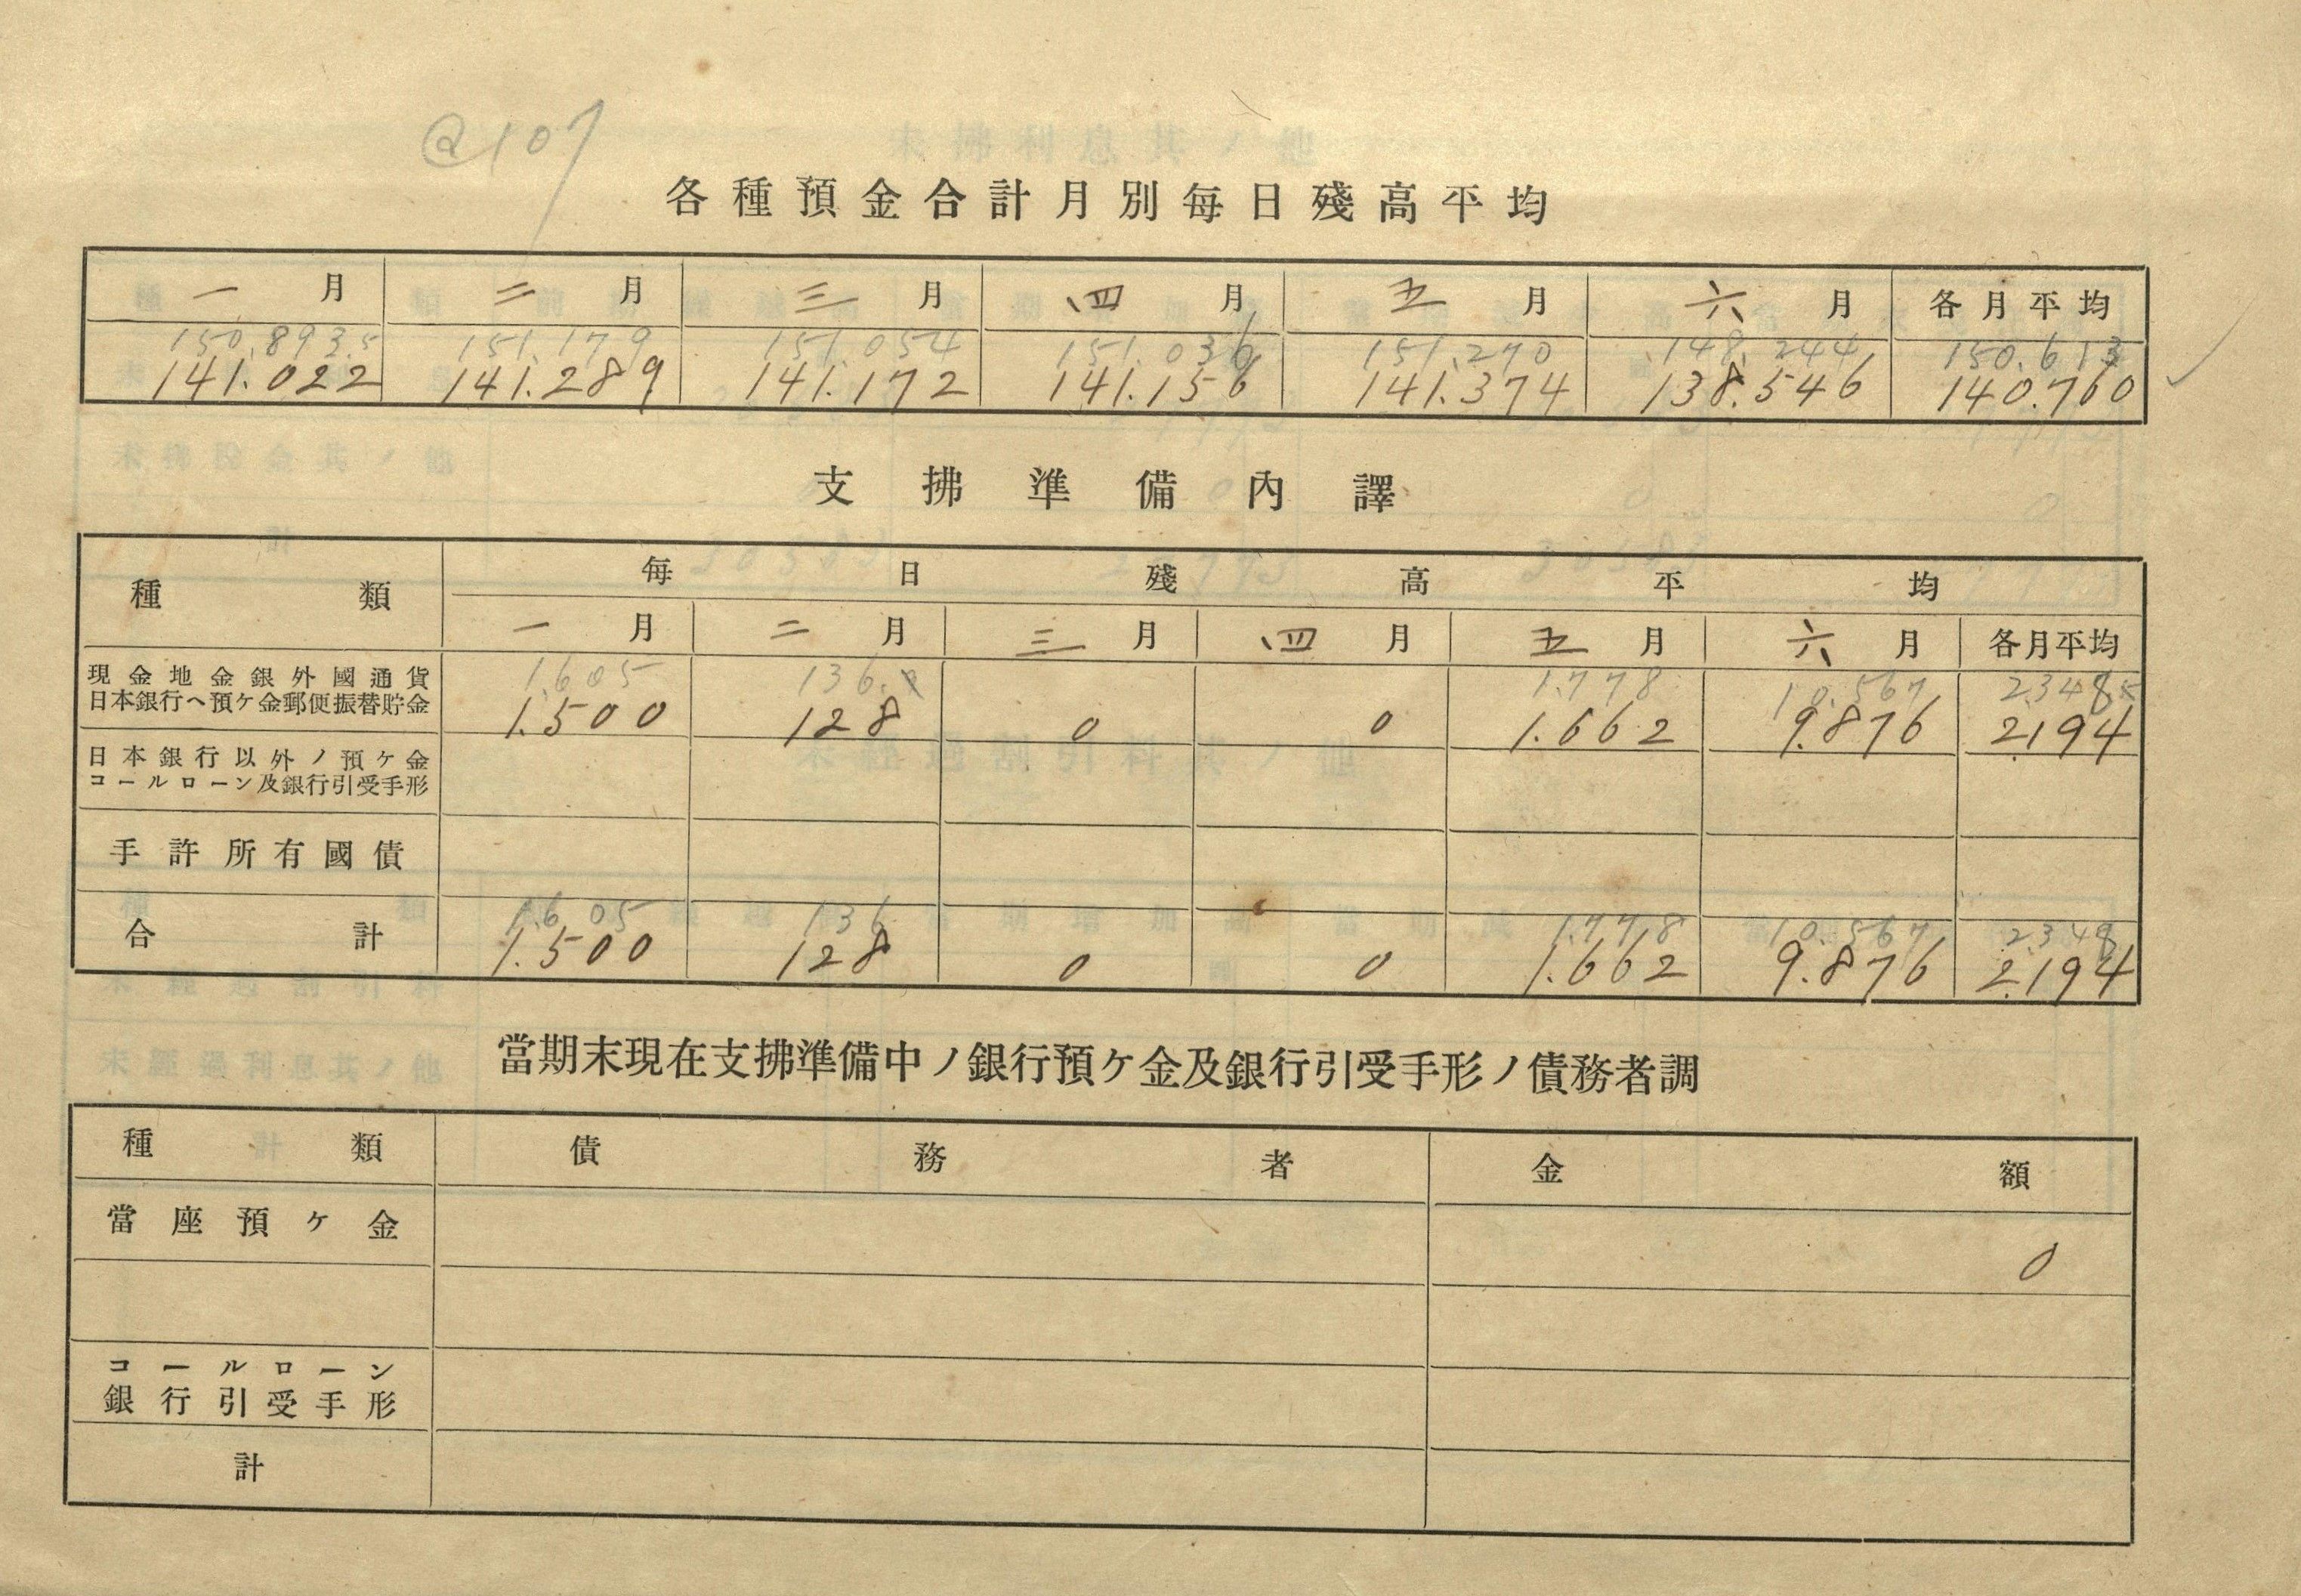 @107
各種預金合計月別每日殘高平均
一月 二月 三月 四月 五月 六月 各月平均
150.893.5 151.179 151.054 151.036 151.270 148.244 150.613
141.022 141.289 141.172 141.156 141.374 138.546 140.760
支拂準備內譯
種類 每日殘高平均
一月 二月 三月 四月 五月 六月 各月平均
現金地金銀外國通貨
日本銀行へ預ケ金郵便振替貯金
1.605 136. 1.778 10.567 2.348
1.500 128 0 0 1.662 9.876 2.194
日本銀行以外ノ預ケ金
コールローン及銀行引受手形
手許所有國債
合計
1.605 136 1.778 10.567 2.348
1.500 128 0 0 1.662 9.876 2.194
當期末現在支拂準備中ノ銀行預ケ金及銀行引受手形ノ債務者調
種類 債務者 金額
當座預ケ金 0
コールローン
銀行引受手形
計